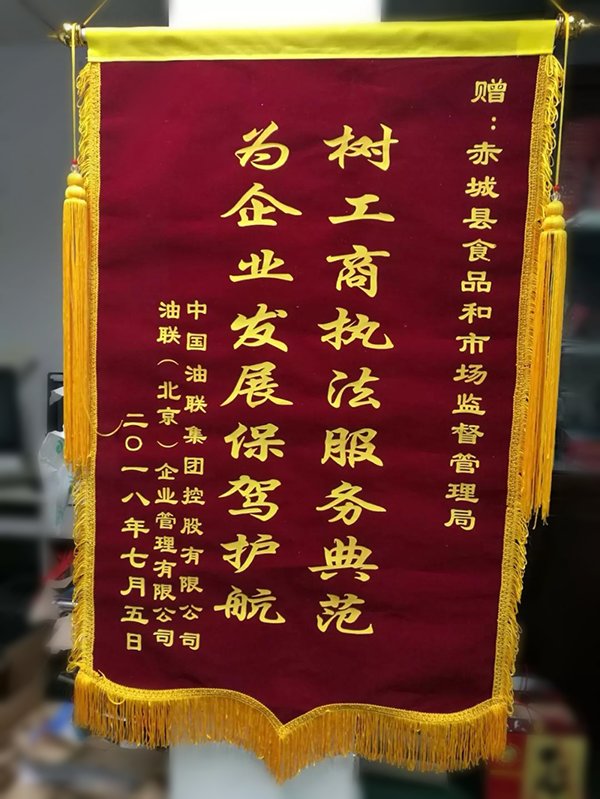 赠：赤城县食品和市场监督管理局
树工商执法服务典范
为企业发展保驾护航
中国油联集团控股有限公司
油联（北京）企业管理有限公司
二〇一八年七月五日